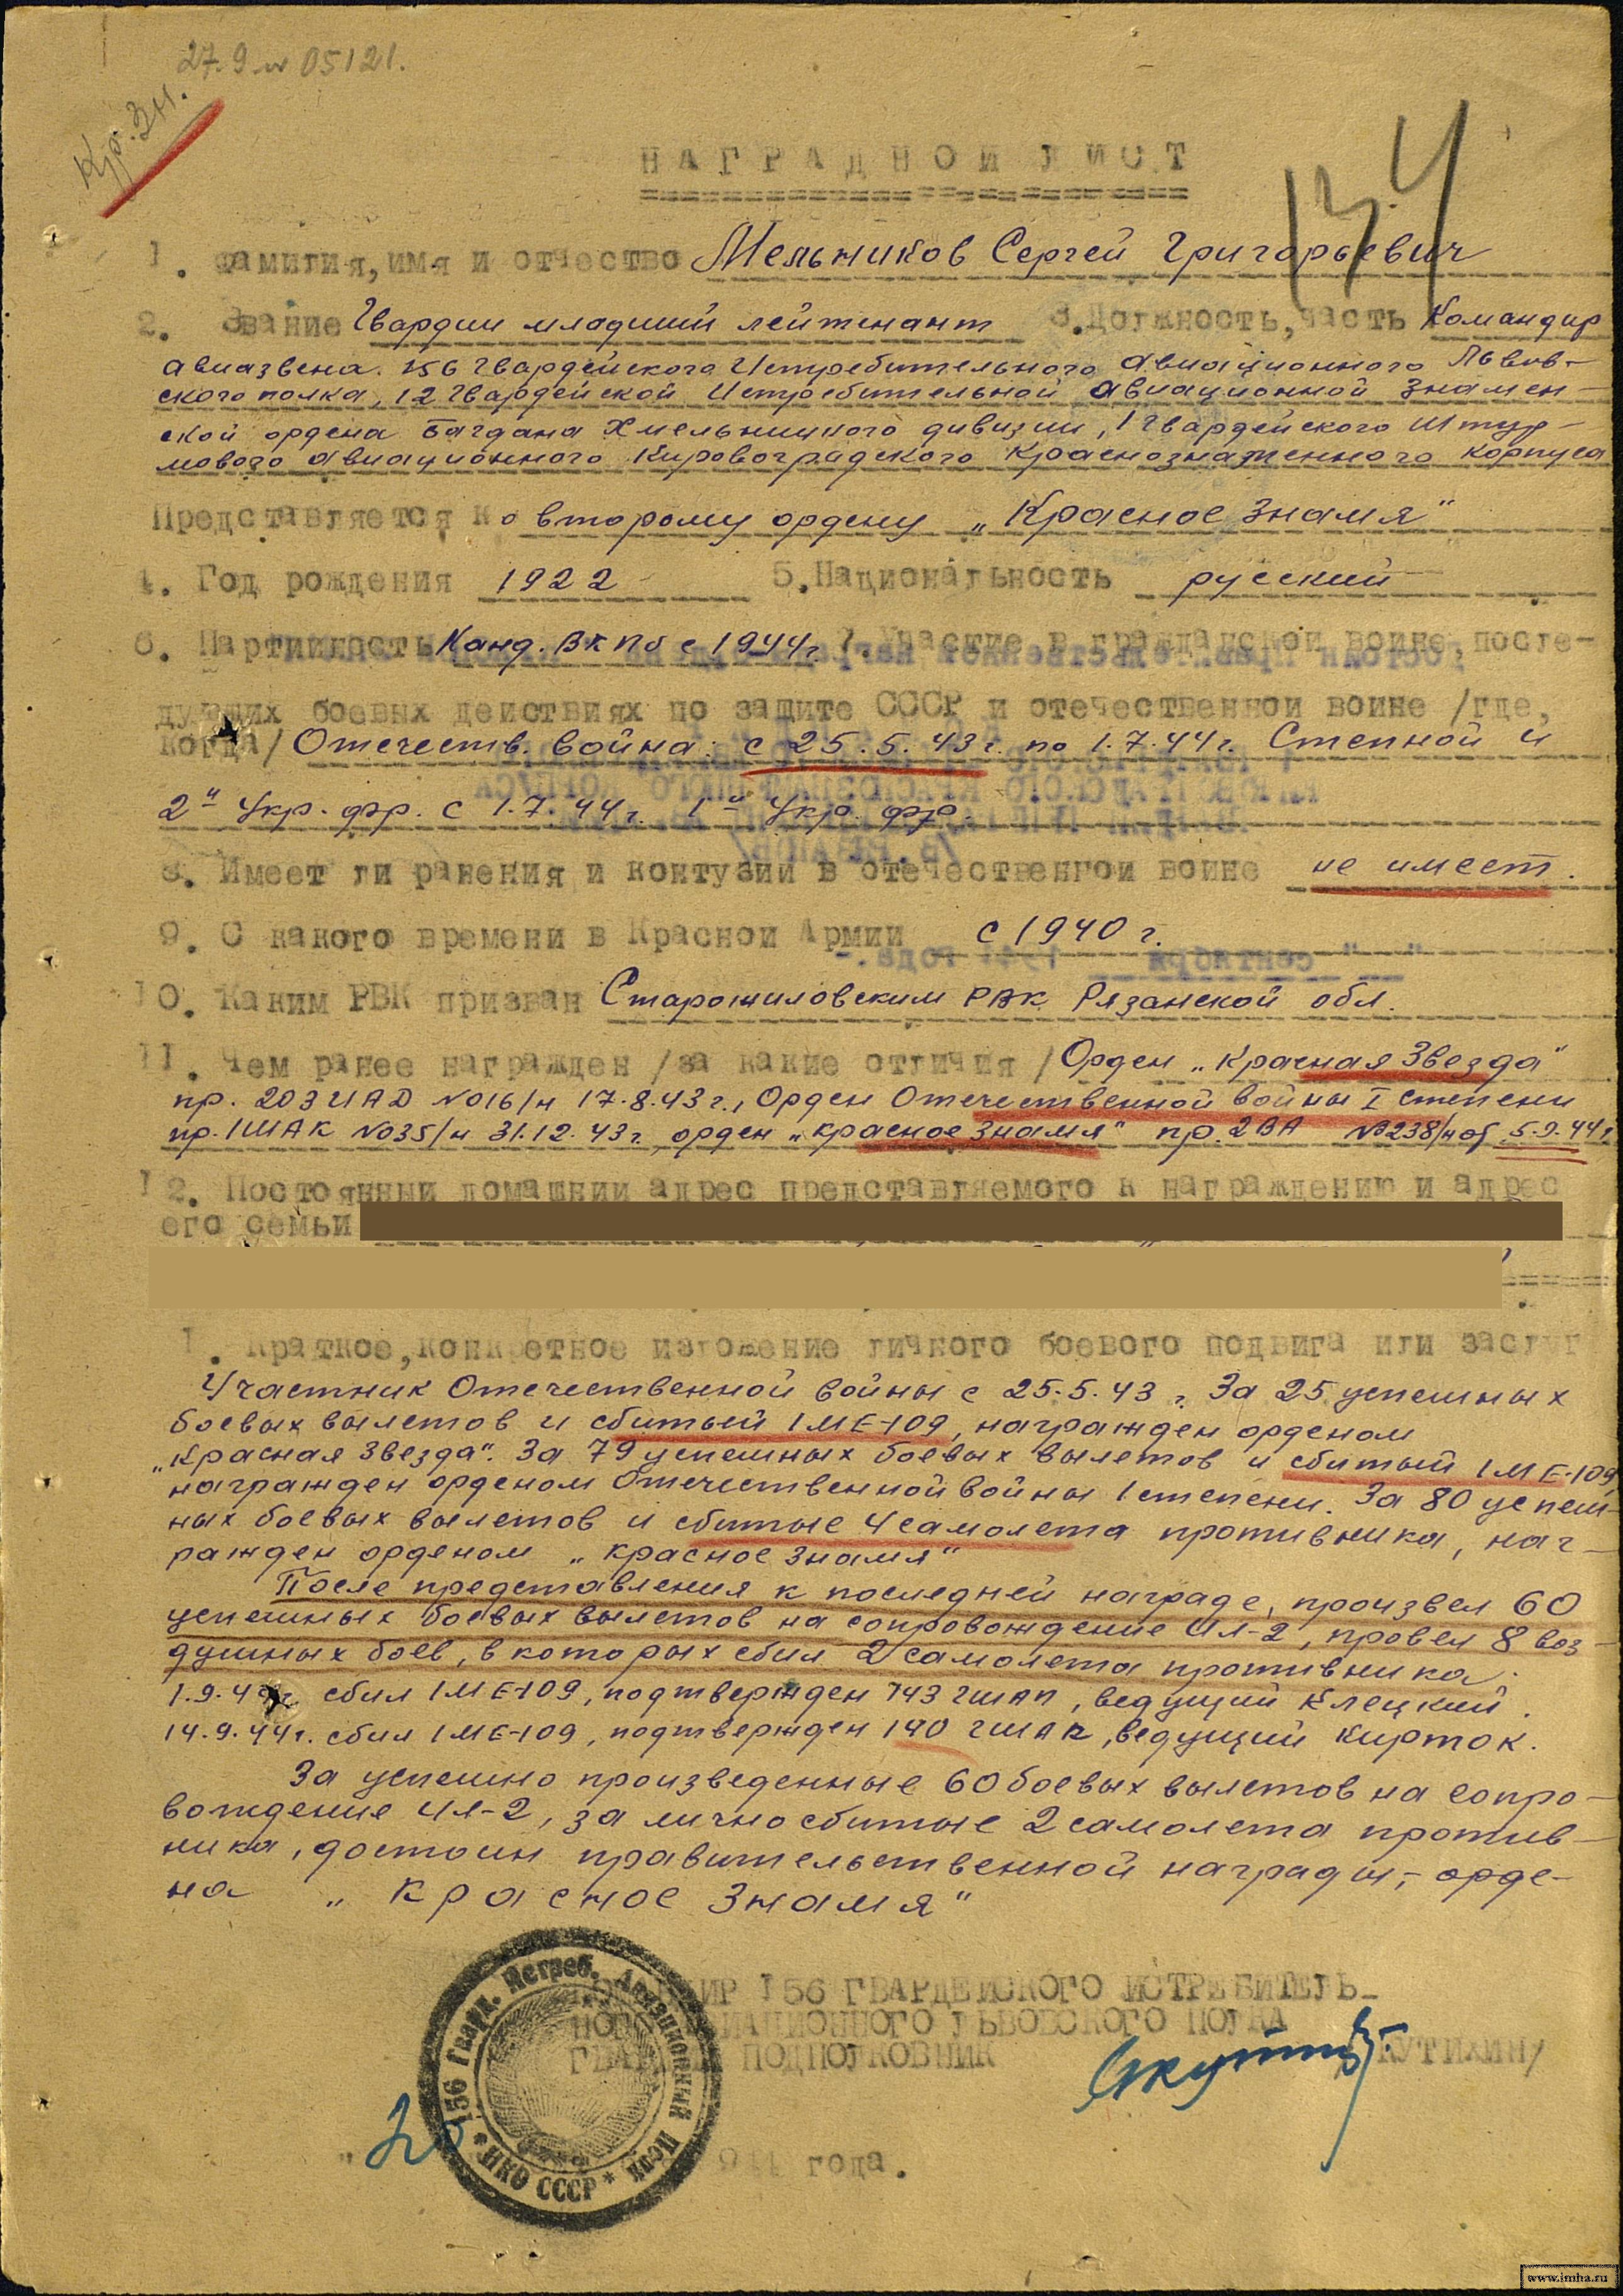 27.9 № 05121.
Кр. Зн.
НАГРАДНОЙ ЛИСТ
1. Фамилия, имя и отчество Мельников Сергей Григорьевич
2. Звание Гвардии младший лейтенант 3. Должность, часть Командир
авиазвена 156 Гвардейского Истребительного Авиационного Львов-
ского полка, 12 Гвардейской Истребительной Авиационной Знамен-
ской ордена Багдана Хмельницкого дивизии, 1 Гвардейского Штур-
мового Авиационного Кировоградского Краснознаменного корпуса
Представляется к о второму ордену „Красное Знамя"
4. Год рождения 1922 5. Национальность русский
6. Партийность Канд. ВКПб с 1944г. 7. Участие в гражданской войне, после-
дующих боевых действиях по защите СССР и отечественной войне /где,
когда/ Отечеств. война: с 25.5.43г. по 1.7.44г. Степной и
2й Укр. фр. с 1.7.44г. 1й Укр. фр.
8. Имеет ли ранения и контузии в отечественной войне не имеет.
9. С какого времени в Красной Армии с 1940 г.
10. Каким РВК призван Старожиловским РВК Рязанской обл.
11. Чем ранее награжден /за какие отличия/ Орден „Красная Звезда"
пр. 203 ИАД №016/н 17.8.43г., Орден Отечественной войны I степени
пр. 1ШАК №035/н 31.12.43г. орден „Красное Знамя" пр. 2ВА №238/н от 5.9.44г
12. Постоянный домашний адрес представляемого к награждению и адрес
его семьи
1. Краткое, конкретное изложение личного боевого подвига или заслуг
Участник Отечественной войны с 25.5.43 г. За 25 успешных
боевых вылетов и сбитый 1 МЕ-109, награжден орденом
„Красная Звезда". За 79 успешных боевых вылетов и сбитый 1 МЕ-109
награжден орденом Отечественной войны 1 степени. За 80 успеш-
ных боевых вылетов и сбитые 4 самолета противника, наг-
ражден орденом „Красное Знамя"
После представления к последней награде, произвел 60
успешных боевых вылетов на сопровождение Ил-2, провел 8 воз-
душных боев, в которых сбил 2 самолета противника.
1.9.44г. сбил 1 МЕ-109, подтвержден 143 ГШАП, ведущий Клецкий.
14.9.44г. сбил 1 МЕ-109, подтвержден 140 ГШАП, ведущий Кирток.
За успешно произведенные 60 боевых вылетов на сопро-
вождение Ил-2, за лично сбитые 2 самолета против-
ника, достоин правительственной награды, - орде-
на „Красное Знамя"
КОМАНДИР 156 ГВАРДЕЙСКОГО ИСТРЕБИТЕЛЬ-
НОГО АВИАЦИОННОГО ЛЬВОВСКОГО ПОЛКА
ГВАРДИИ ПОДПОЛКОВНИК КУТИХИН/
156 Гвард. Истреб. Авиационный Полк * НКО СССР *
1944 года.
www.imha.ru